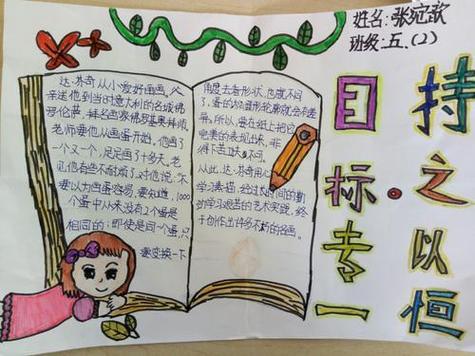 姓名:张冠歆
班级:五.(2)
持之以恒
目标专一
达·芬奇从小爱好画画,父
亲送他到当时意大利的名城佛
罗伦萨,拜名画家佛罗基奥为师,
老师要他从画蛋开始,他画了
一个又一个,足足画了十多天,老
见他有些不耐烦了,对他说:不
要以为画蛋容易,要知道,1000
个蛋中从来没有2个蛋是
相同的;即使是同一个蛋,只
要变换一下
角度去看形状,也就不同
了,蛋的椭圆形轮廓就会有差
异,所以,要在纸上把它
完美的表现出来,非
得下苦功夫不可。
从此,达·芬奇用心
学习素描,经过长时间的勤
奋学习艰苦的艺术实践,终
于创作出许多不朽的名画。